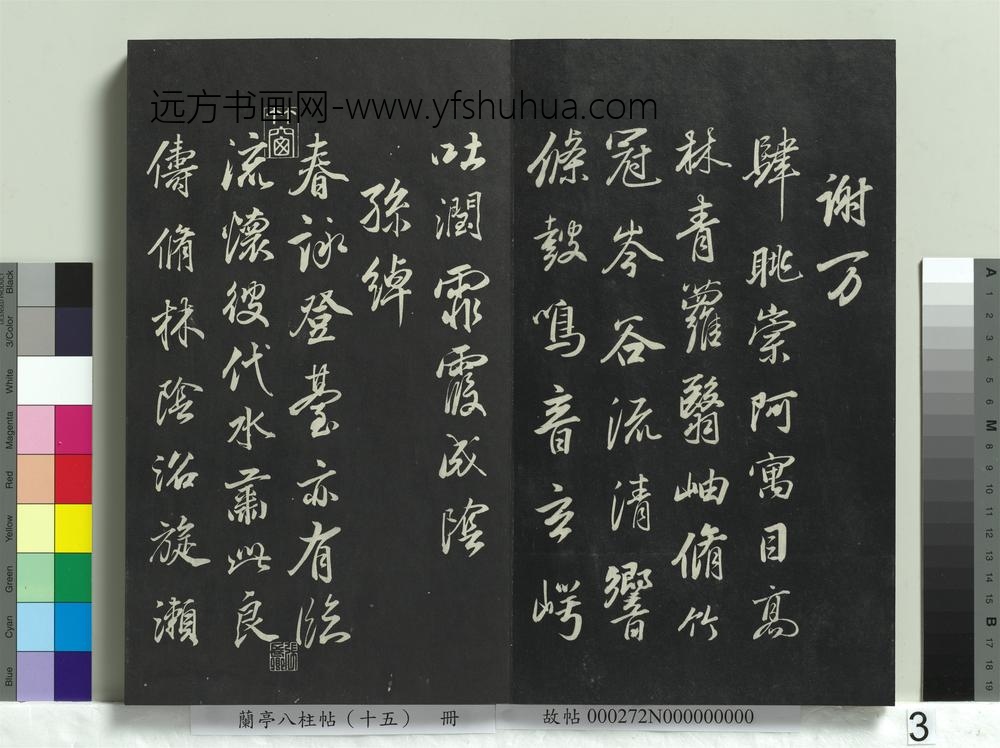 远方书画网-www.yfshuhua.com
謝万
肆眺崇阿寓目高
林青蘿翳岫脩竹
冠岑谷流清響
條鼓鳴音玄崿
吐潤霏霞成陰
孫綽
春詠登臺亦有臨
流懷彼伐木肅此良
儔脩林陰沼旋瀨
蘭亭八柱帖（十五） 冊
故帖 000272N000000000
3
Black
3/Color
White
Magenta
Red
Yellow
Green
Cyan
Blue
A
1
2
3
4
5
6
M
8
9
10
11
12
13
14
15
B
17
18
19